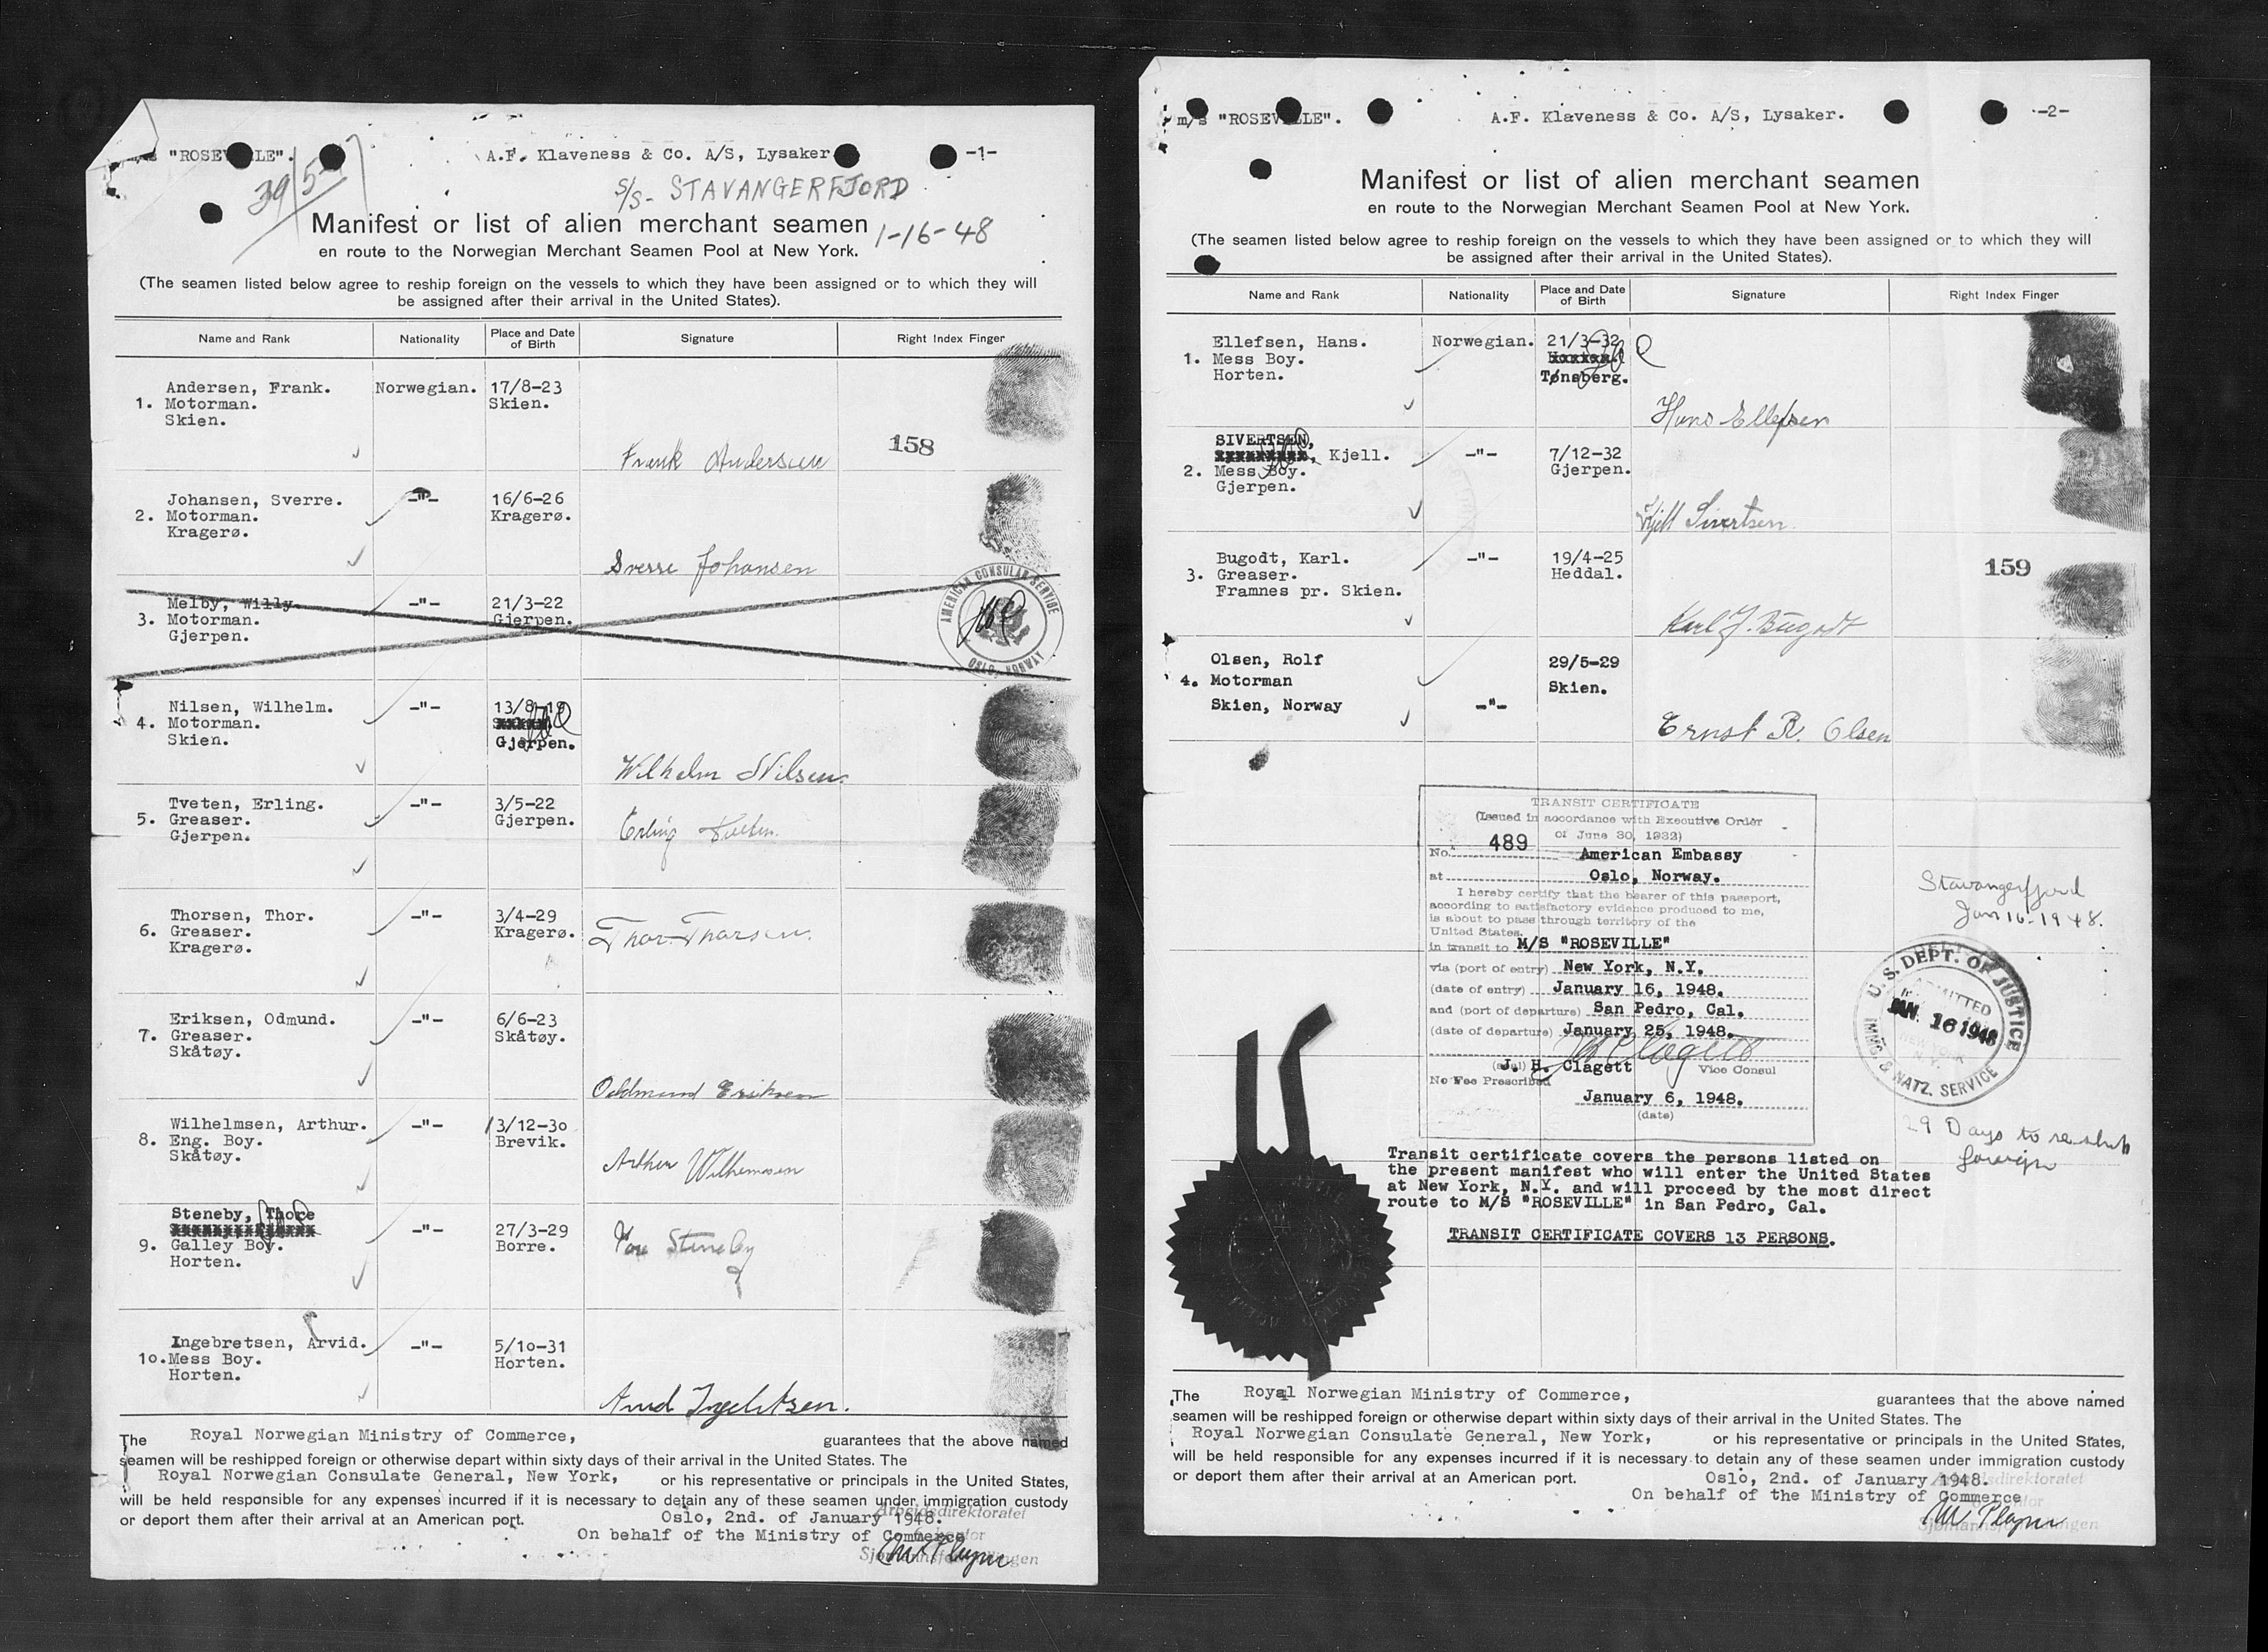 "ROSEVILLE". A.F. Klaveness & Co. A/S, Lysaker -1-
39/57
S/S- STAVANGERFJORD
Manifest or list of alien merchant seamen
1-16-48
en route to the Norwegian Merchant Seamen Pool at New York.
(The seamen listed below agree to reship foreign on the vessels to which they have been assigned or to which they will
be assigned after their arrival in the United States).
Name and Rank Nationality Place and Date of Birth Signature Right Index Finger
Andersen, Frank. Norwegian. 17/8-23
1. Motorman. Skien.
Skien.
Frank Andersen 158
Johansen, Sverre. -"- 16/6-26
2. Motorman. Kragerø.
Kragerø.
Sverre Johansen
Melby, Willy. -"- 21/3-22
3. Motorman. Gjerpen.
Gjerpen.
AMERICAN CONSULAR SERVICE
OSLO, NORWAY
Nilsen, Wilhelm. -"- 13/8-19
4. Motorman.
Skien. Gjerpen.
Wilhelm Nilsen.
Tveten, Erling. -"- 3/5-22
5. Greaser. Gjerpen.
Gjerpen.
Erling Tveten.
Thorsen, Thor. -"- 3/4-29
6. Greaser. Kragerø.
Kragerø.
Thor Thorsen.
Eriksen, Odmund. -"- 6/6-23
7. Greaser. Skåtøy.
Skåtøy.
Oddmund Eriksen
Wilhelmsen, Arthur. -"- 13/12-30
8. Eng. Boy. Brevik.
Skåtøy.
Arthur Wilhemsen
Steneby, Thore
-"- 27/3-29
9. Galley Boy. Borre.
Horten.
Tore Steneby
Ingebretsen, Arvid. -"- 5/10-31
10. Mess Boy. Horten.
Horten.
Arvid Ingebretsen.
The Royal Norwegian Ministry of Commerce, guarantees that the above named
seamen will be reshipped foreign or otherwise depart within sixty days of their arrival in the United States. The
Royal Norwegian Consulate General, New York, or his representative or principals in the United States,
will be held responsible for any expenses incurred if it is necessary to detain any of these seamen under immigration custody
or deport them after their arrival at an American port. Oslo, 2nd. of January 1948.
Arbeidsdirektoratet
On behalf of the Ministry of Commerce
m/s "ROSEVILLE". A.F. Klaveness & Co. A/S, Lysaker. -2-
Manifest or list of alien merchant seamen
en route to the Norwegian Merchant Seamen Pool at New York.
(The seamen listed below agree to reship foreign on the vessels to which they have been assigned or to which they will
be assigned after their arrival in the United States).
Name and Rank Nationality Place and Date of Birth Signature Right Index Finger
Ellefsen, Hans. Norwegian. 21/3-32
1. Mess Boy.
Horten. Tønsberg.
Hans Ellefsen
SIVERTSEN,
Kjell. -"- 7/12-32
2. Mess Boy. Gjerpen.
Gjerpen.
Kjell Sivertsen.
Bugodt, Karl. -"- 19/4-25
3. Greaser. Heddal. 159
Framnes pr. Skien.
Karl J. Bugodt
Olsen, Rolf 29/5-29
4. Motorman Skien.
Skien, Norway -"-
Ernst R. Olsen
TRANSIT CERTIFICATE
(Issued in accordance with Executive Order
of June 30, 1932)
No. 489 American Embassy
at Oslo, Norway.
I hereby certify that the bearer of this passport,
according to satisfactory evidence produced to me,
is about to pass through territory of the
United States.
in transit to M/S "ROSEVILLE"
via (port of entry) New York, N.Y.
(date of entry) January 16, 1948.
and (port of departure) San Pedro, Cal.
(date of departure) January 25, 1948.
J. H. Clagett Vice Consul
No Fee Prescribed
January 6, 1948.
(date)
Stavangerfjord
Jan 16-1948.
U.S. DEPT. OF JUSTICE
ADMITTED
JAN. 16 1948
NEW YORK
N.Y.
IMMG. & NATZ. SERVICE
29 Days to reship
foreign
Transit certificate covers the persons listed on
the present manifest who will enter the United States
at New York, N.Y. and will proceed by the most direct
route to M/S "ROSEVILLE" in San Pedro, Cal.
TRANSIT CERTIFICATE COVERS 13 PERSONS.
The Royal Norwegian Ministry of Commerce, guarantees that the above named
seamen will be reshipped foreign or otherwise depart within sixty days of their arrival in the United States. The
Royal Norwegian Consulate General, New York, or his representative or principals in the United States,
will be held responsible for any expenses incurred if it is necessary to detain any of these seamen under immigration custody
or deport them after their arrival at an American port. Oslo, 2nd. of January 1948.
On behalf of the Ministry of Commerce